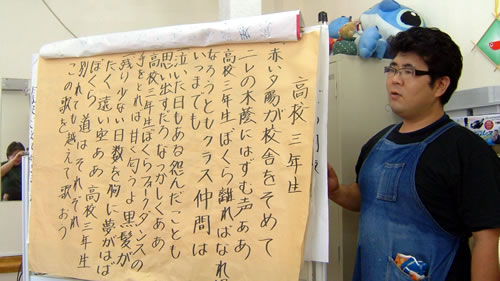 高校三年生
赤い夕陽が校舎をそめて
ニレの木陰にはずむ声ああ
高校三年生ぼくら離ればなれ
なろうともクラス仲間は
いつまでも
泣いた日もある怨んだことも
思い出すだろうなつかしくああ
高校三年生ぼくらフォークダンスの
手をとれば甘く匂うよ黒髪が
残り少ない日数を胸に夢がはば
たく 遠い空ああ 高校三年生
ぼくら 道はそれぞれ
別れても越えて歌おう
この歌を